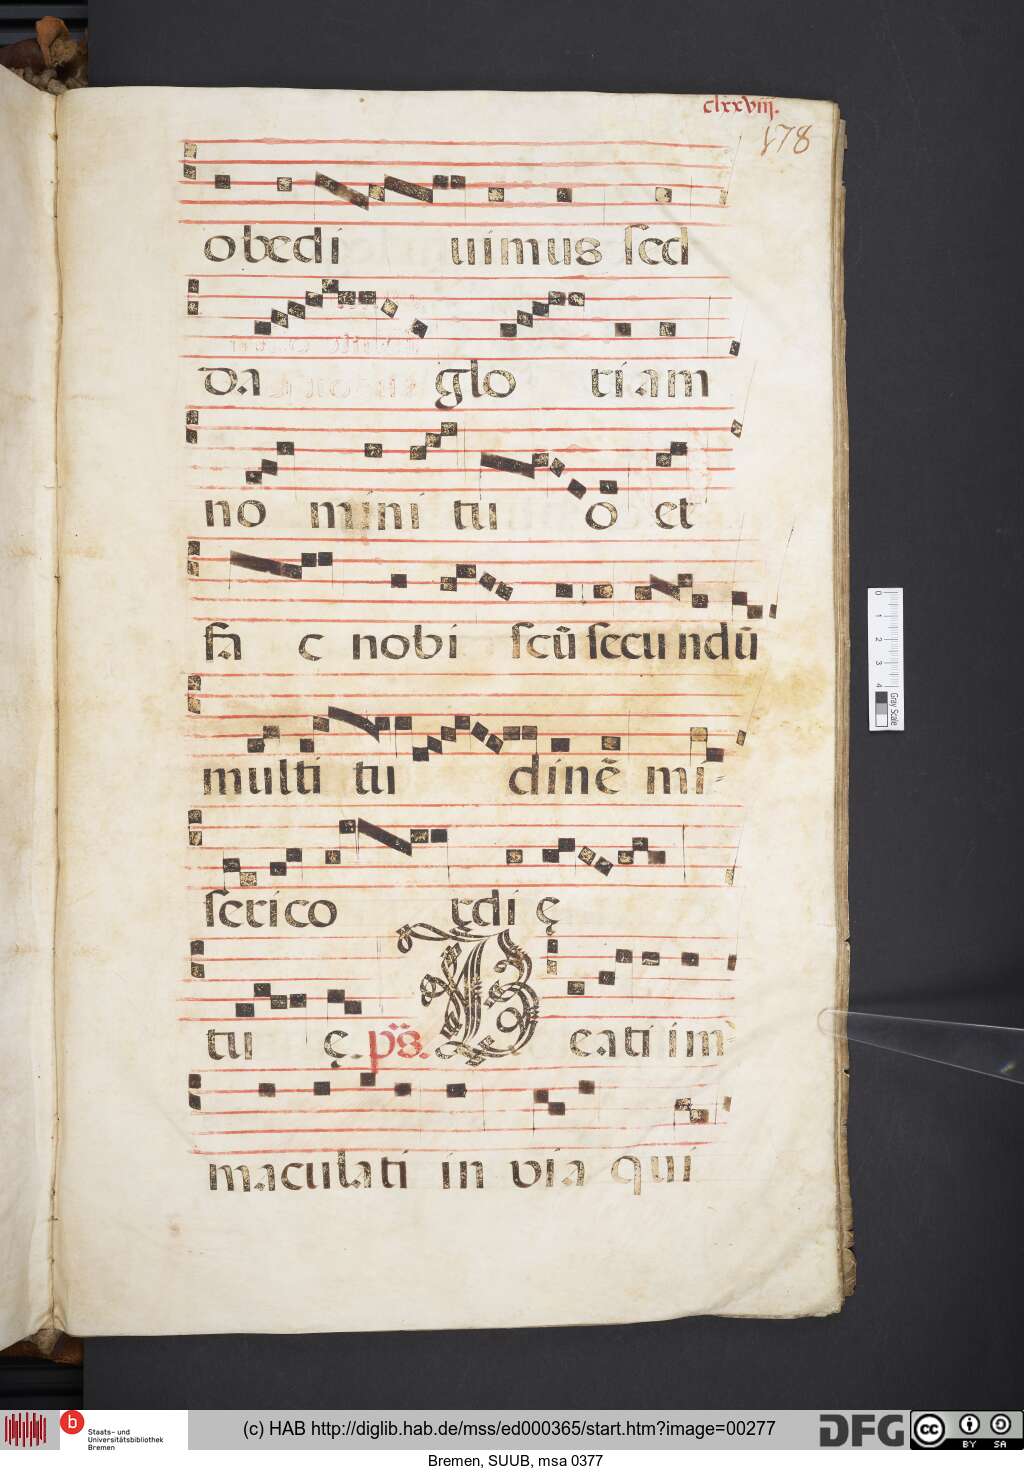 clxxviij.
178
obedi uimus sed
da glo riam
no mini tu o et
fa c nobi scū secundū
multi tu dinē mi-
serico rdi ę
tu ę. ps̄. Beati im
maculati in via qui
0 1 2 3 4
Gray Scale
b
Staats- und
Universitätsbibliothek
Bremen
(c) HAB http://diglib.hab.de/mss/ed000365/start.htm?image=00277
DFG
cc BY SA
Bremen, SUUB, msa 0377